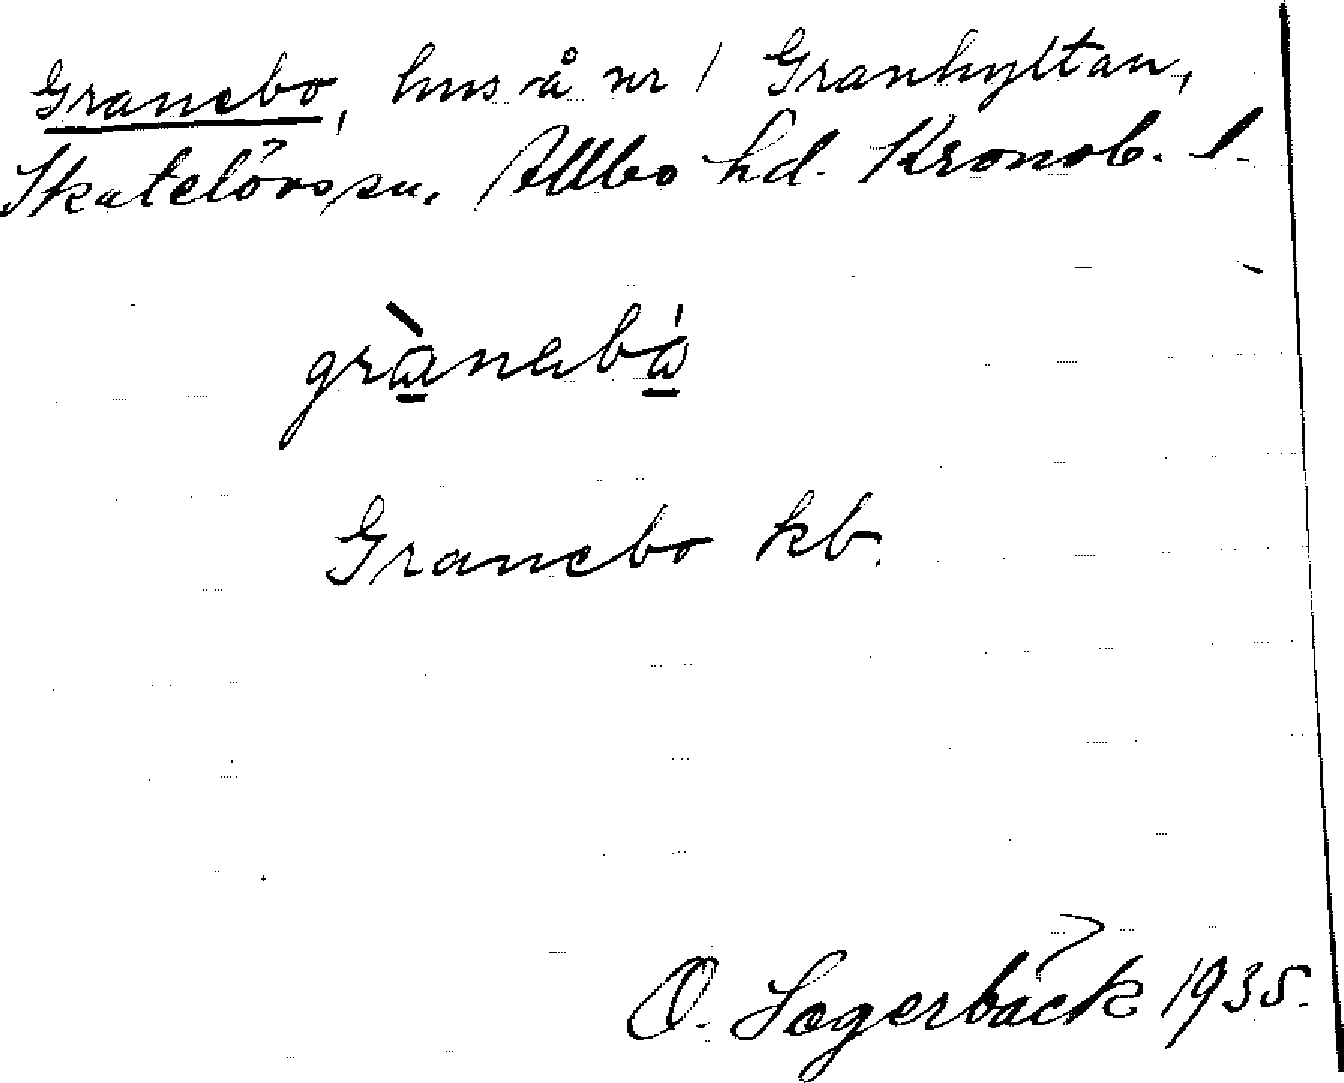 Granebo, hus å nr 1 Granhyltan,
Skatelövs sn. Allbo hd. Kronob. l.
grànebå
Granebo kb.
O. Lagerbäck 1935.